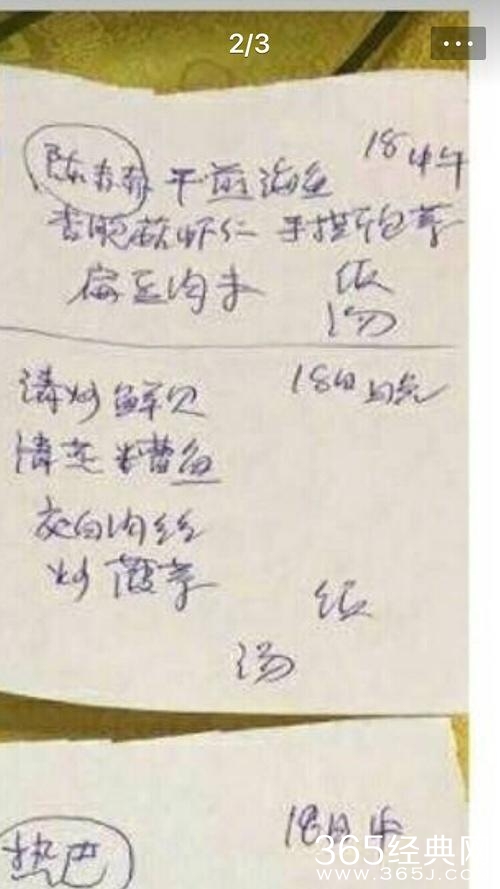 2/3
陈乔恩 干煎海鱼 18中午
杏鲍菇虾仁 手撕包菜
扁豆肉末 饭
汤
清炒鲜贝 18日晚
清蒸糟鱼
茭白肉丝
炒菠菜
饭
汤
热巴 18日
365经典网
WWW.365J.CO